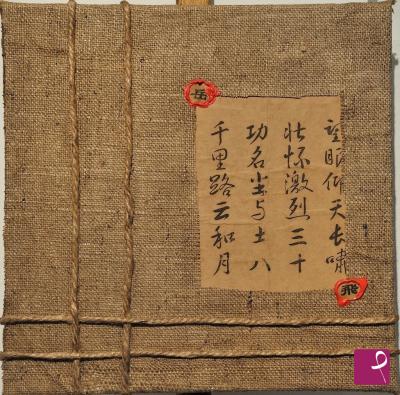 望眼仰天长啸
壮怀激烈三十
功名尘与土八
千里路云和月
岳
飛